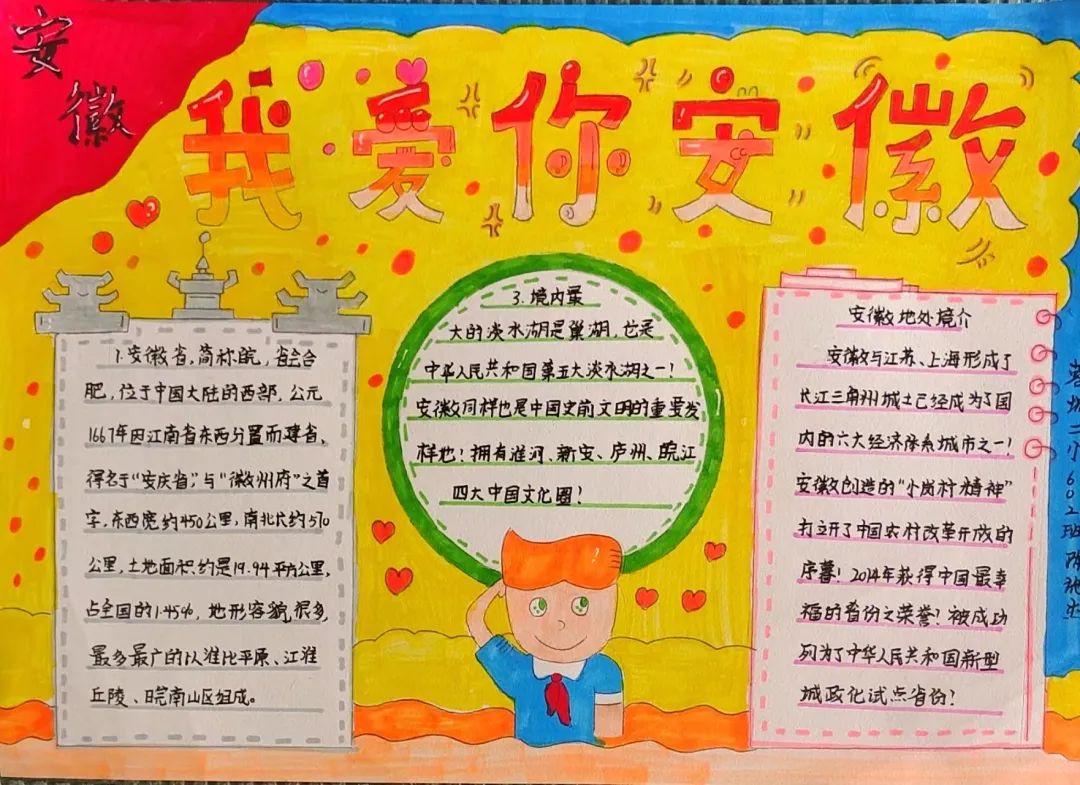 安
徽
我爱你安徽
1.安徽省,简称皖,省会合
肥,位于中国大陆的西部,公元
1667年因江南省东西分置而建省,
得名于“安庆省”与“徽州府”之首
字,东西宽约450公里,南北长约570
公里,土地面积约是19.94平方公里,
占全国的1.45%,地形容貌很多,
最多最广的以淮北平原、江淮
丘陵、皖南山区组成。
3.境内最
大的淡水湖是巢湖,也是
中华人民共和国第五大淡水湖之一!
安徽同样也是中国史前文明的重要发
样地!拥有淮河、新安、庐州、皖江
四大中国文化圈!
安徽地处境介
安徽与江苏、上海形成了
长江三角州城土已经成为了国
内的六大经济体系城市之一!
安徽创造的“小岗村精神”
打立开了中国农村改革开放的
序幕!2014年获得中国最幸
福的省份之荣誉!被成功
列为了中华人民共和国新型
城政化试点省份!
二小602班